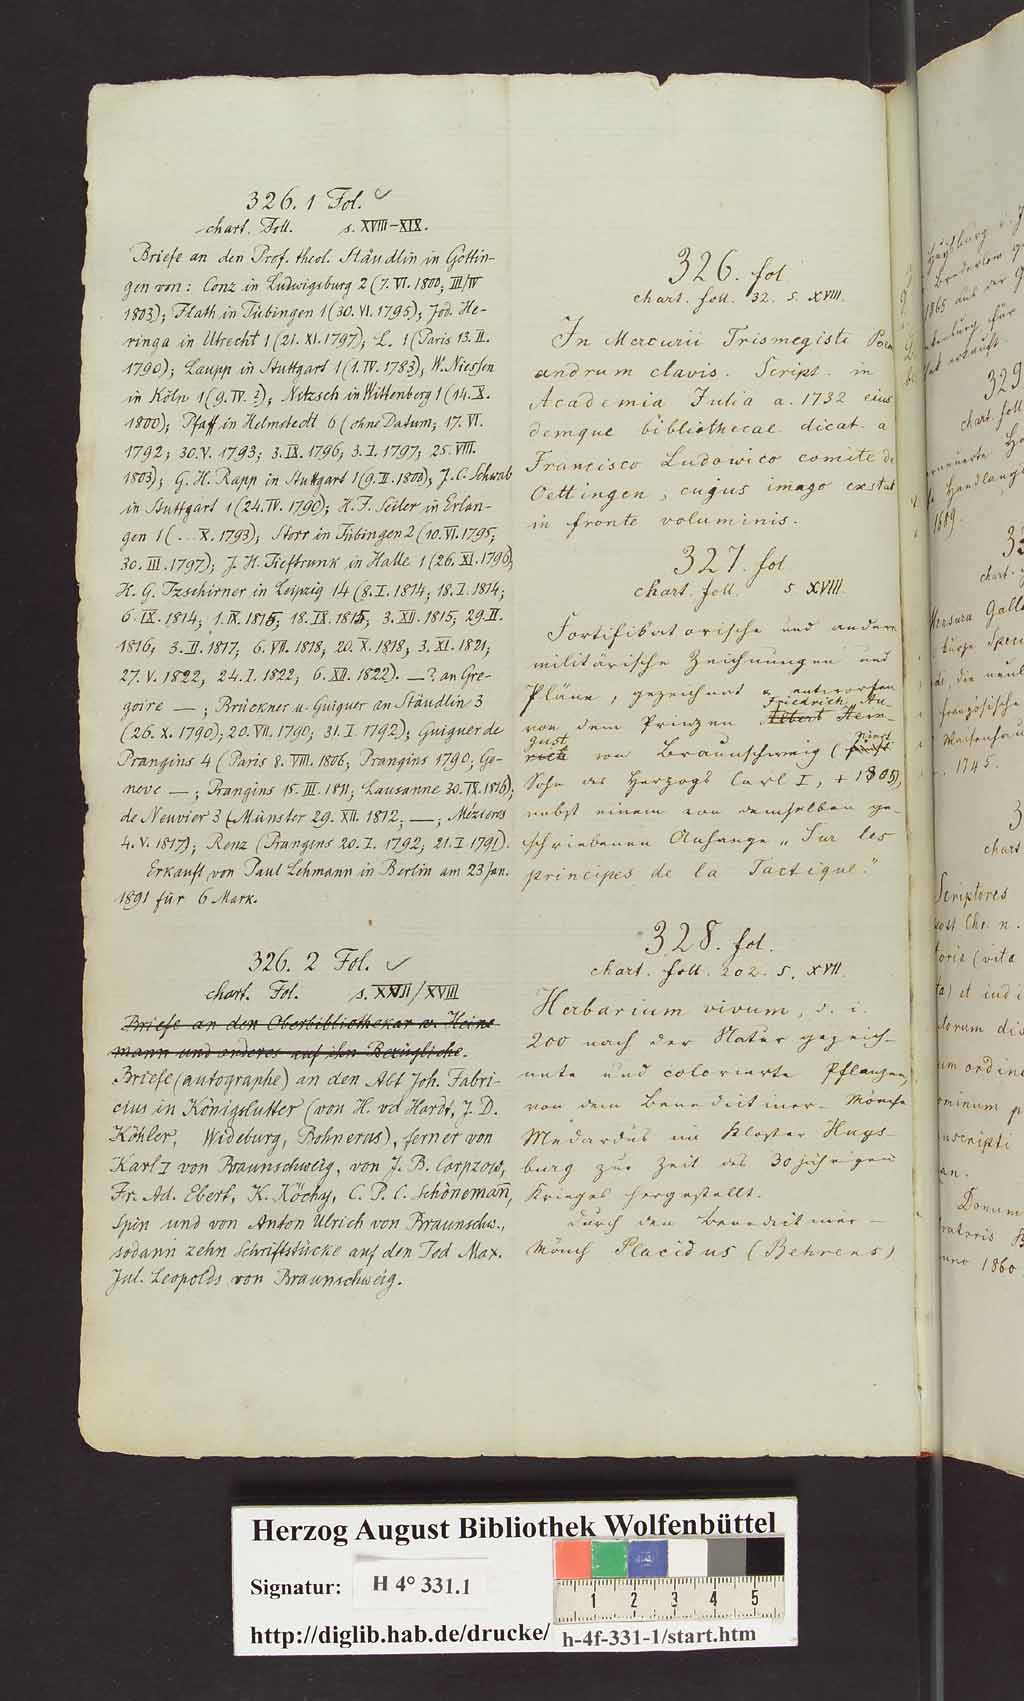 326. 1 Fol.
chart. Foll. s. XVIII–XIX.
Briefe an den Prof. theol. Stäudlin in Göttin-
gen von: Conz in Ludwigsburg 2 (7. VI. 1800; III/IV
1803); Flath in Tübingen 1 (30. VI. 1795); Jod. He-
ringa in Utrecht 1 (21. XI. 1797); L. 1 (Paris 13. II.
1790); Laupp in Stuttgart 1 (1. IV. 1783); W. Niessen
in Köln 1 (9. IV. ?); Nitzsch in Wittenberg 1 (14. X.
1800); Pfaff in Helmstedt 6 (ohne Datum; 17. VI.
1792; 30. V. 1793; 3. IX. 1796; 3. I. 1797; 25. VIII.
1803); G. H. Rapp in Stuttgart 1 (9. II. 1803); J. C. Schwab
in Stuttgart 1 (24. IV. 1790); H. F. Seiler in Erlan-
gen 1 (... X. 1793); Storr in Tübingen 2 (10. VI. 1795;
30. III. 1797); J. H. Tieftrunk in Halle 1 (26. XI. 1796);
H. G. Tzschirner in Leipzig 14 (8. I. 1814; 18. I. 1814;
6. IX. 1814; 1. IX. 1815; 18. IX. 1815; 3. XII. 1815; 29. II.
1816; 3. II. 1817; 6. VII. 1818; 20. X. 1818; 3. XI. 1821;
27. V. 1822, 24. I. 1822; 6. XII. 1822). —? an Gre-
goire —; Brückner u. Guiguer an Stäudlin 3
(26. X. 1790); 20. VII. 1790; 31. I. 1792); Guiguer de
Prangins 4 (Paris 8. VIII. 1806; Prangins 1790; Ge-
neve —; Prangins 15. III. 1811; Lausanne 30. IX. 1816);
de Neuvier 3 (Münster 29. XII. 1812; —; Mézieres
4. V. 1817); Renz (Prangins 20. I. 1792; 21. I. 1791).
Erkauft von Paul Lehmann in Berlin am 23 Jan.
1891 für 6 Mark.
326. 2 Fol.
chart. Fol. s. XVII/XVIII
Briefe an den Oberbibliothekar v. Heine
mann und anderes auf ihn Bezügliche.
Briefe (autographe) an den Abt Joh. Fabri-
cius in Königslutter (von H. vd Hardt, J. D.
Köhler, Wideburg, Bohnerus), ferner von
Karl I von Braunschweig, von J. B. Carpzow,
Fr. Ad. Ebert, K. Köchy, C. P. C. Schönemann,
Spin und von Anton Ulrich von Braunschw.,
sodann zehn Schriftstücke auf den Tod Max.
Jul. Leopolds von Braunschweig.
326. fol.
chart. foll. 32. s. XVIII.
In Mercurii Trismegisti Poem
andrum clavis. Script. in
Academia Julia a. 1732 eius
demque bibliothecae dicat. a
Francisco Ludowico comite de
Oettingen, cujus imago exstat
in fronte voluminis.
327. fol.
chart. foll. s. XVIII.
Fortifikatorische und andere
militärische Zeichnungen und
Pläne, gezeichnet u. entworfen
von dem Prinzen Albert Hein- Friedrich Au-
rich gust von Braunschweig (
Sohn des Herzogs Carl I, + 1805),
nebst einem von demselben ge-
schriebenen Anhange „Sur les
principes de la Tactique."
328. fol.
chart. foll. 202. s. XVII.
Herbarium vivum, d. i.
200 nach der Natur gezeich-
nete und colorierte Pflanzen,
von dem Benedictiner-Mönche
Medardus im Kloster Huys-
burg zur Zeit des 30 jährigen
Krieges hergestellt.
durch den Benedictiner-
Mönch Placidus (Behrens)
1865 aus der
329
chart. foll
1609.
chart.
Mersura Galla
französische
Waisenhau
1745.
chart
Scriptores
post Chr. n.
toris (vita
et indi
um ordine
ominum p
nscripti
an.
Donum
anno 1860
Herzog August Bibliothek Wolfenbüttel
Signatur: H 4° 331.1
1 2 3 4 5
http://diglib.hab.de/drucke/ h-4f-331-1/start.htm